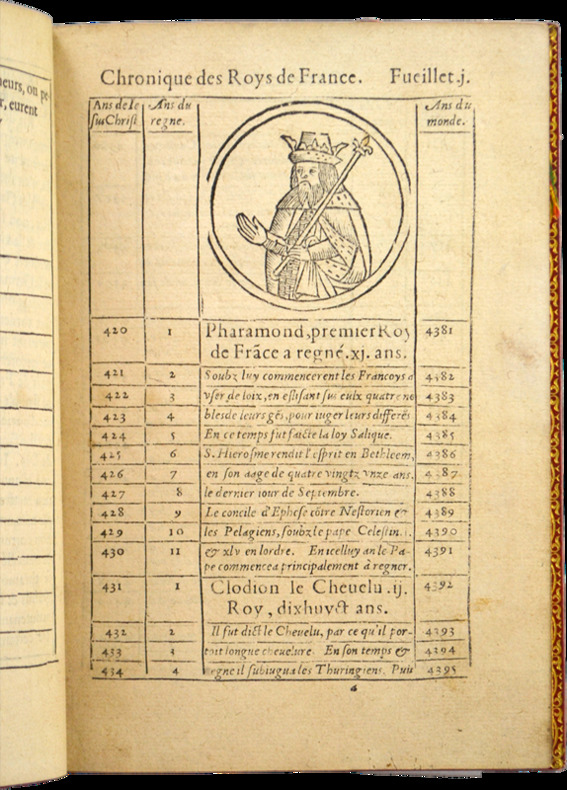 eurs, ou pe
r, eurent
Chronique des Roys de France. Fueillet.j.
Ans de Ie
sus Christ
Ans du
regne.
Ans du
monde.
420 1 Pharamond, premier Roy 4381
de Frãce a regné .xj. ans.
421 2 Soubz luy commencerent les Francoys a 4382
422 3 vser de loix, en eslisant sus eulx quatre no 4383
423 4 bles de leurs gẽs, pour iuger leurs differẽs 4384
424 5 En ce temps fut faicte la loy Salique. 4385
425 6 S. Hierosme rendit l'esprit en Bethleem, 4386
426 7 en son aage de quatre vingtz vnze ans, 4387
427 8 le dernier iour de Septembre. 4388
428 9 Le concile d'Ephese cõtre Nestorien & 4389
429 10 les Pelagiens, soubz le pape Celestin. 4390
430 11 & xlv en lordre. En icelluy an le Pa- 4391
pe commencea principalement à regner.
431 1 Clodion le Cheuelu .ij. 4392
Roy, dixhuyct ans.
432 2 Il fut dict le Cheuelu, par ce qu'il por- 4393
433 3 toit longue cheuelure. En son temps & 4294
434 4 regne il subiugua les Thuringiens. Puis 4395